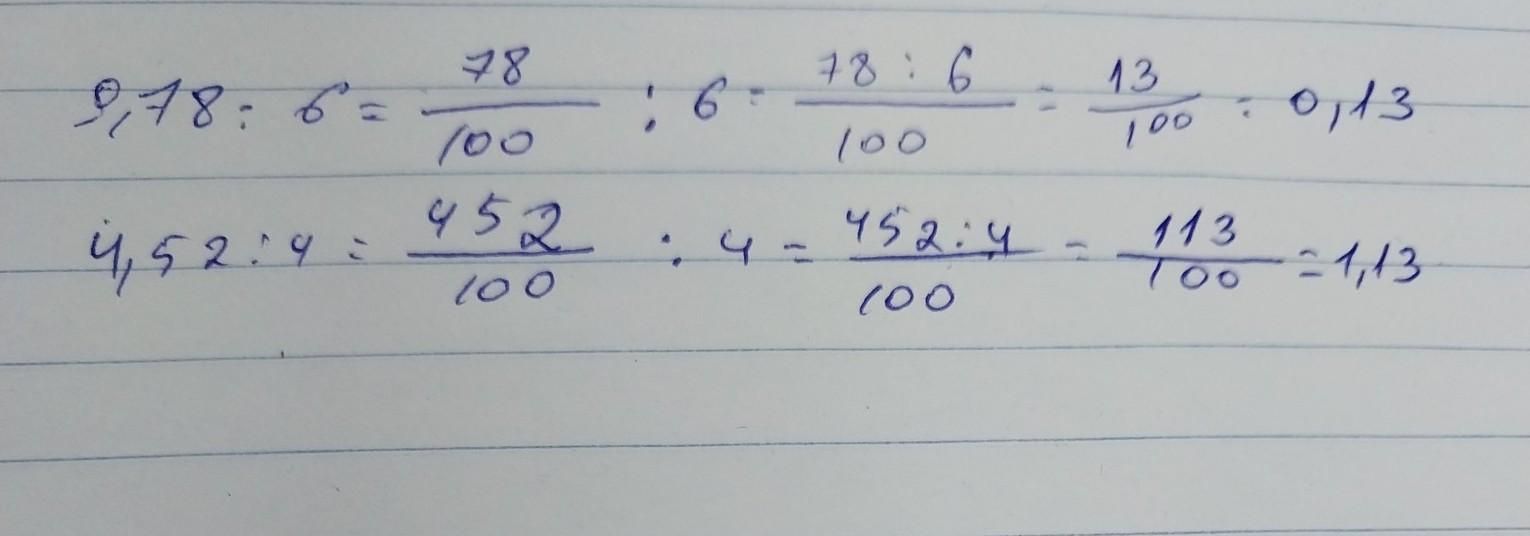 9,78 : 6 = 78/100 : 6 = 78 : 6/100 = 13/100 = 0,13
4,52 : 4 = 452/100 : 4 = 452 : 4/100 = 113/100 = 1,13